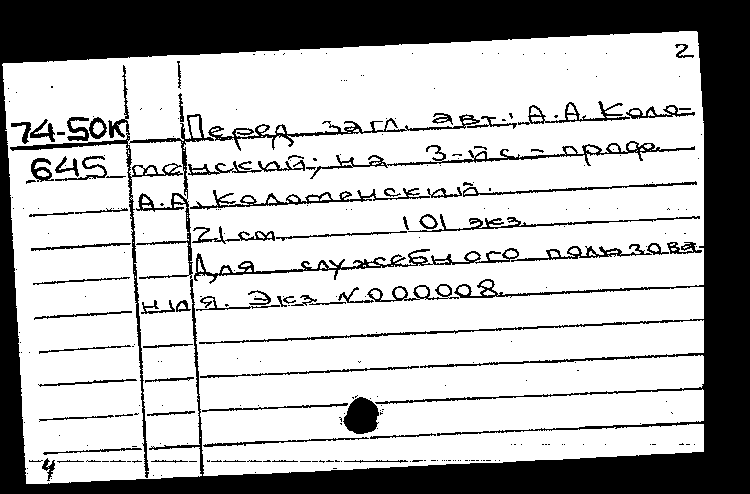 2
74-50К Перед загл. авт.: А.А. Коло-
645 менский; на 3-й с. - проф.
А.А. Коломенский.
21 см. 101 экз.
Для служебного пользова-
ния. Экз. №000008.
4